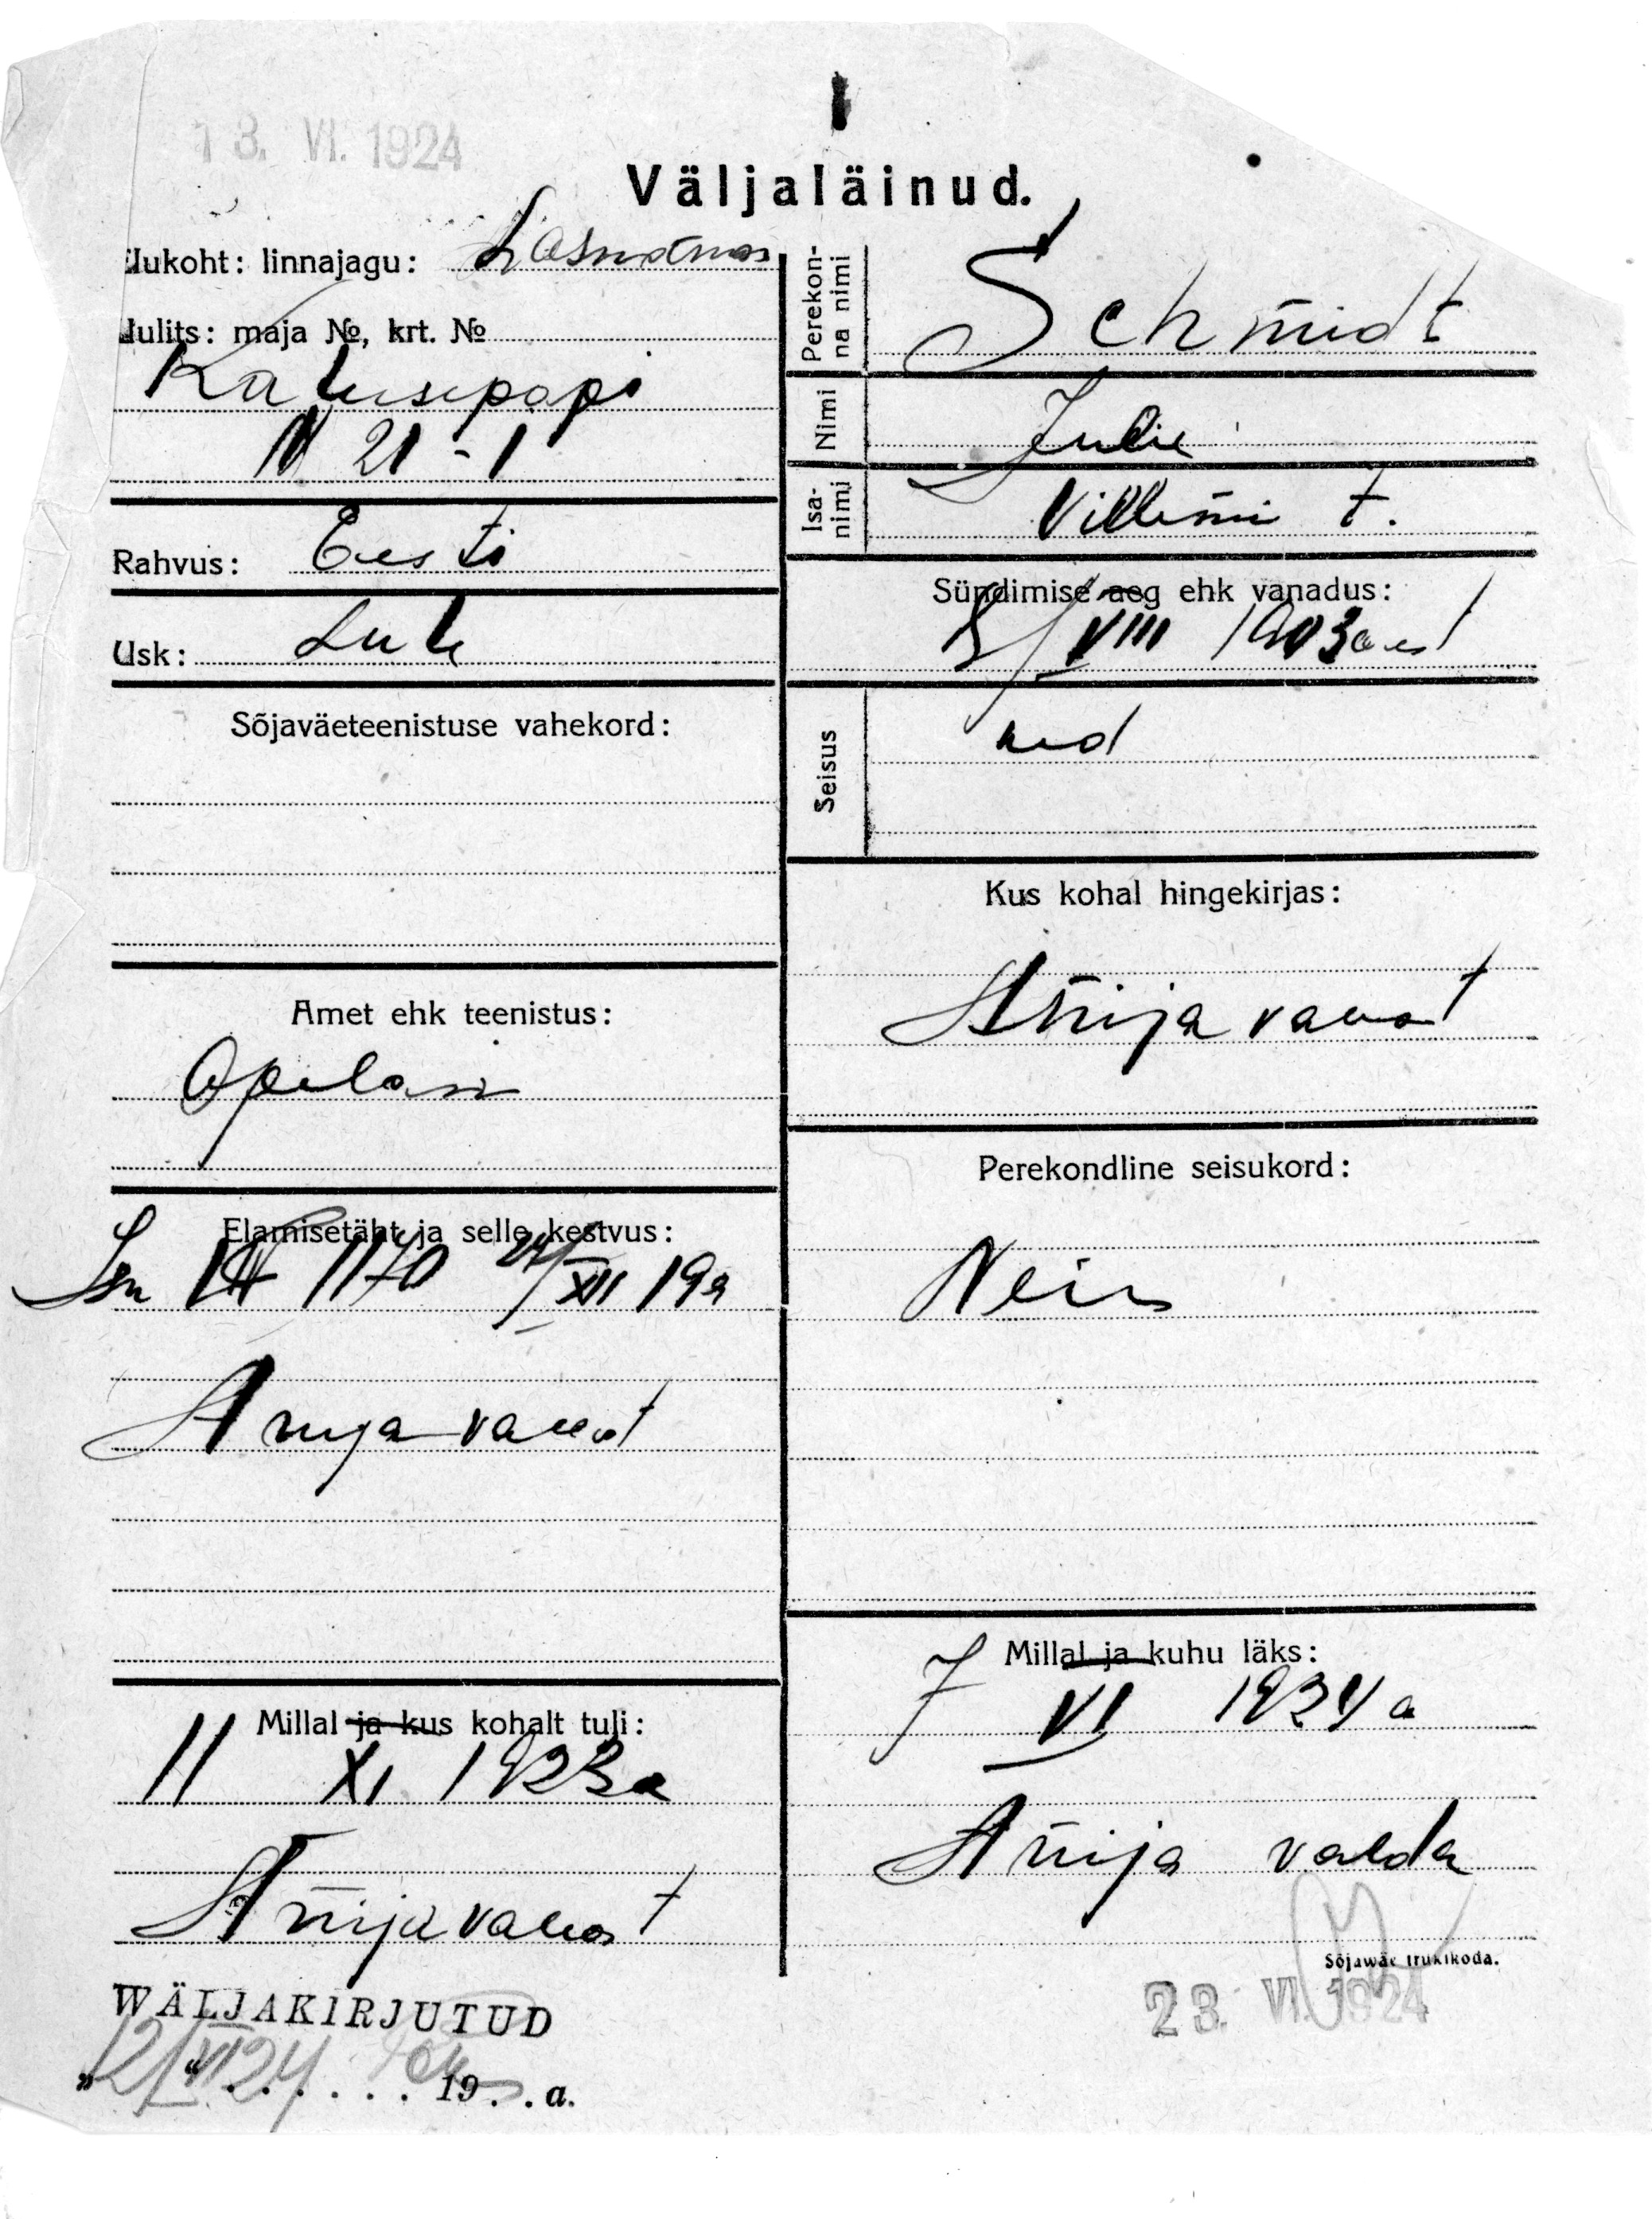 13. VI. 1924
Väljaläinud.
Elukoht: linnajagu: Lasnamäe
Uulits: maja №, krt. №
Katusepapi
N 21 - 1
Rahvus: Eesti
Usk: Lute
Sõjaväeteenistuse vahekord:
Amet ehk teenistus:
Õpilane
Elamisetäht ja selle kestvus:
1170 24/XII 19
Anija vallast
Millal ja kus kohalt tuli:
11 XI 1923 a
Anija vallast
WÄLJAKIRJUTUD
" 21/VI 24 " . . . . . . 19 . . a.
Perekonna nimi
Schmidt
Nimi
Julie
Isanimi
Villemi t.
Sündimise aeg ehk vanadus:
VIII 1903
Seisus
Kus kohal hingekirjas:
Anija vallast
Perekondline seisukord:
Neiu
Millal ja kuhu läks:
7 VI 1924 a
Anija valda
Sõjawäe trükikoda.
23. VI. 1924